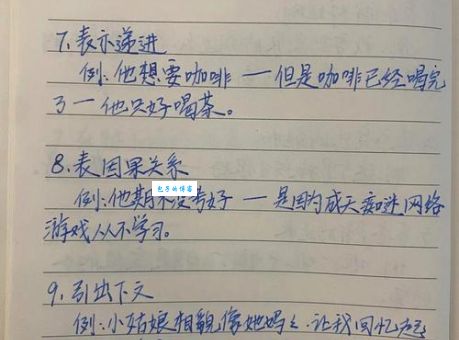 7.表示递进
例:他想要咖啡 — 但是咖啡已经喝完
了 — 他只好喝茶。
8.表因果关系
包子的博客
例:他期末没考好 — 是因为成天痴迷网络
游戏从不学习。
9.引出下文
例:小姑娘相貌像她妈么.让我回忆起